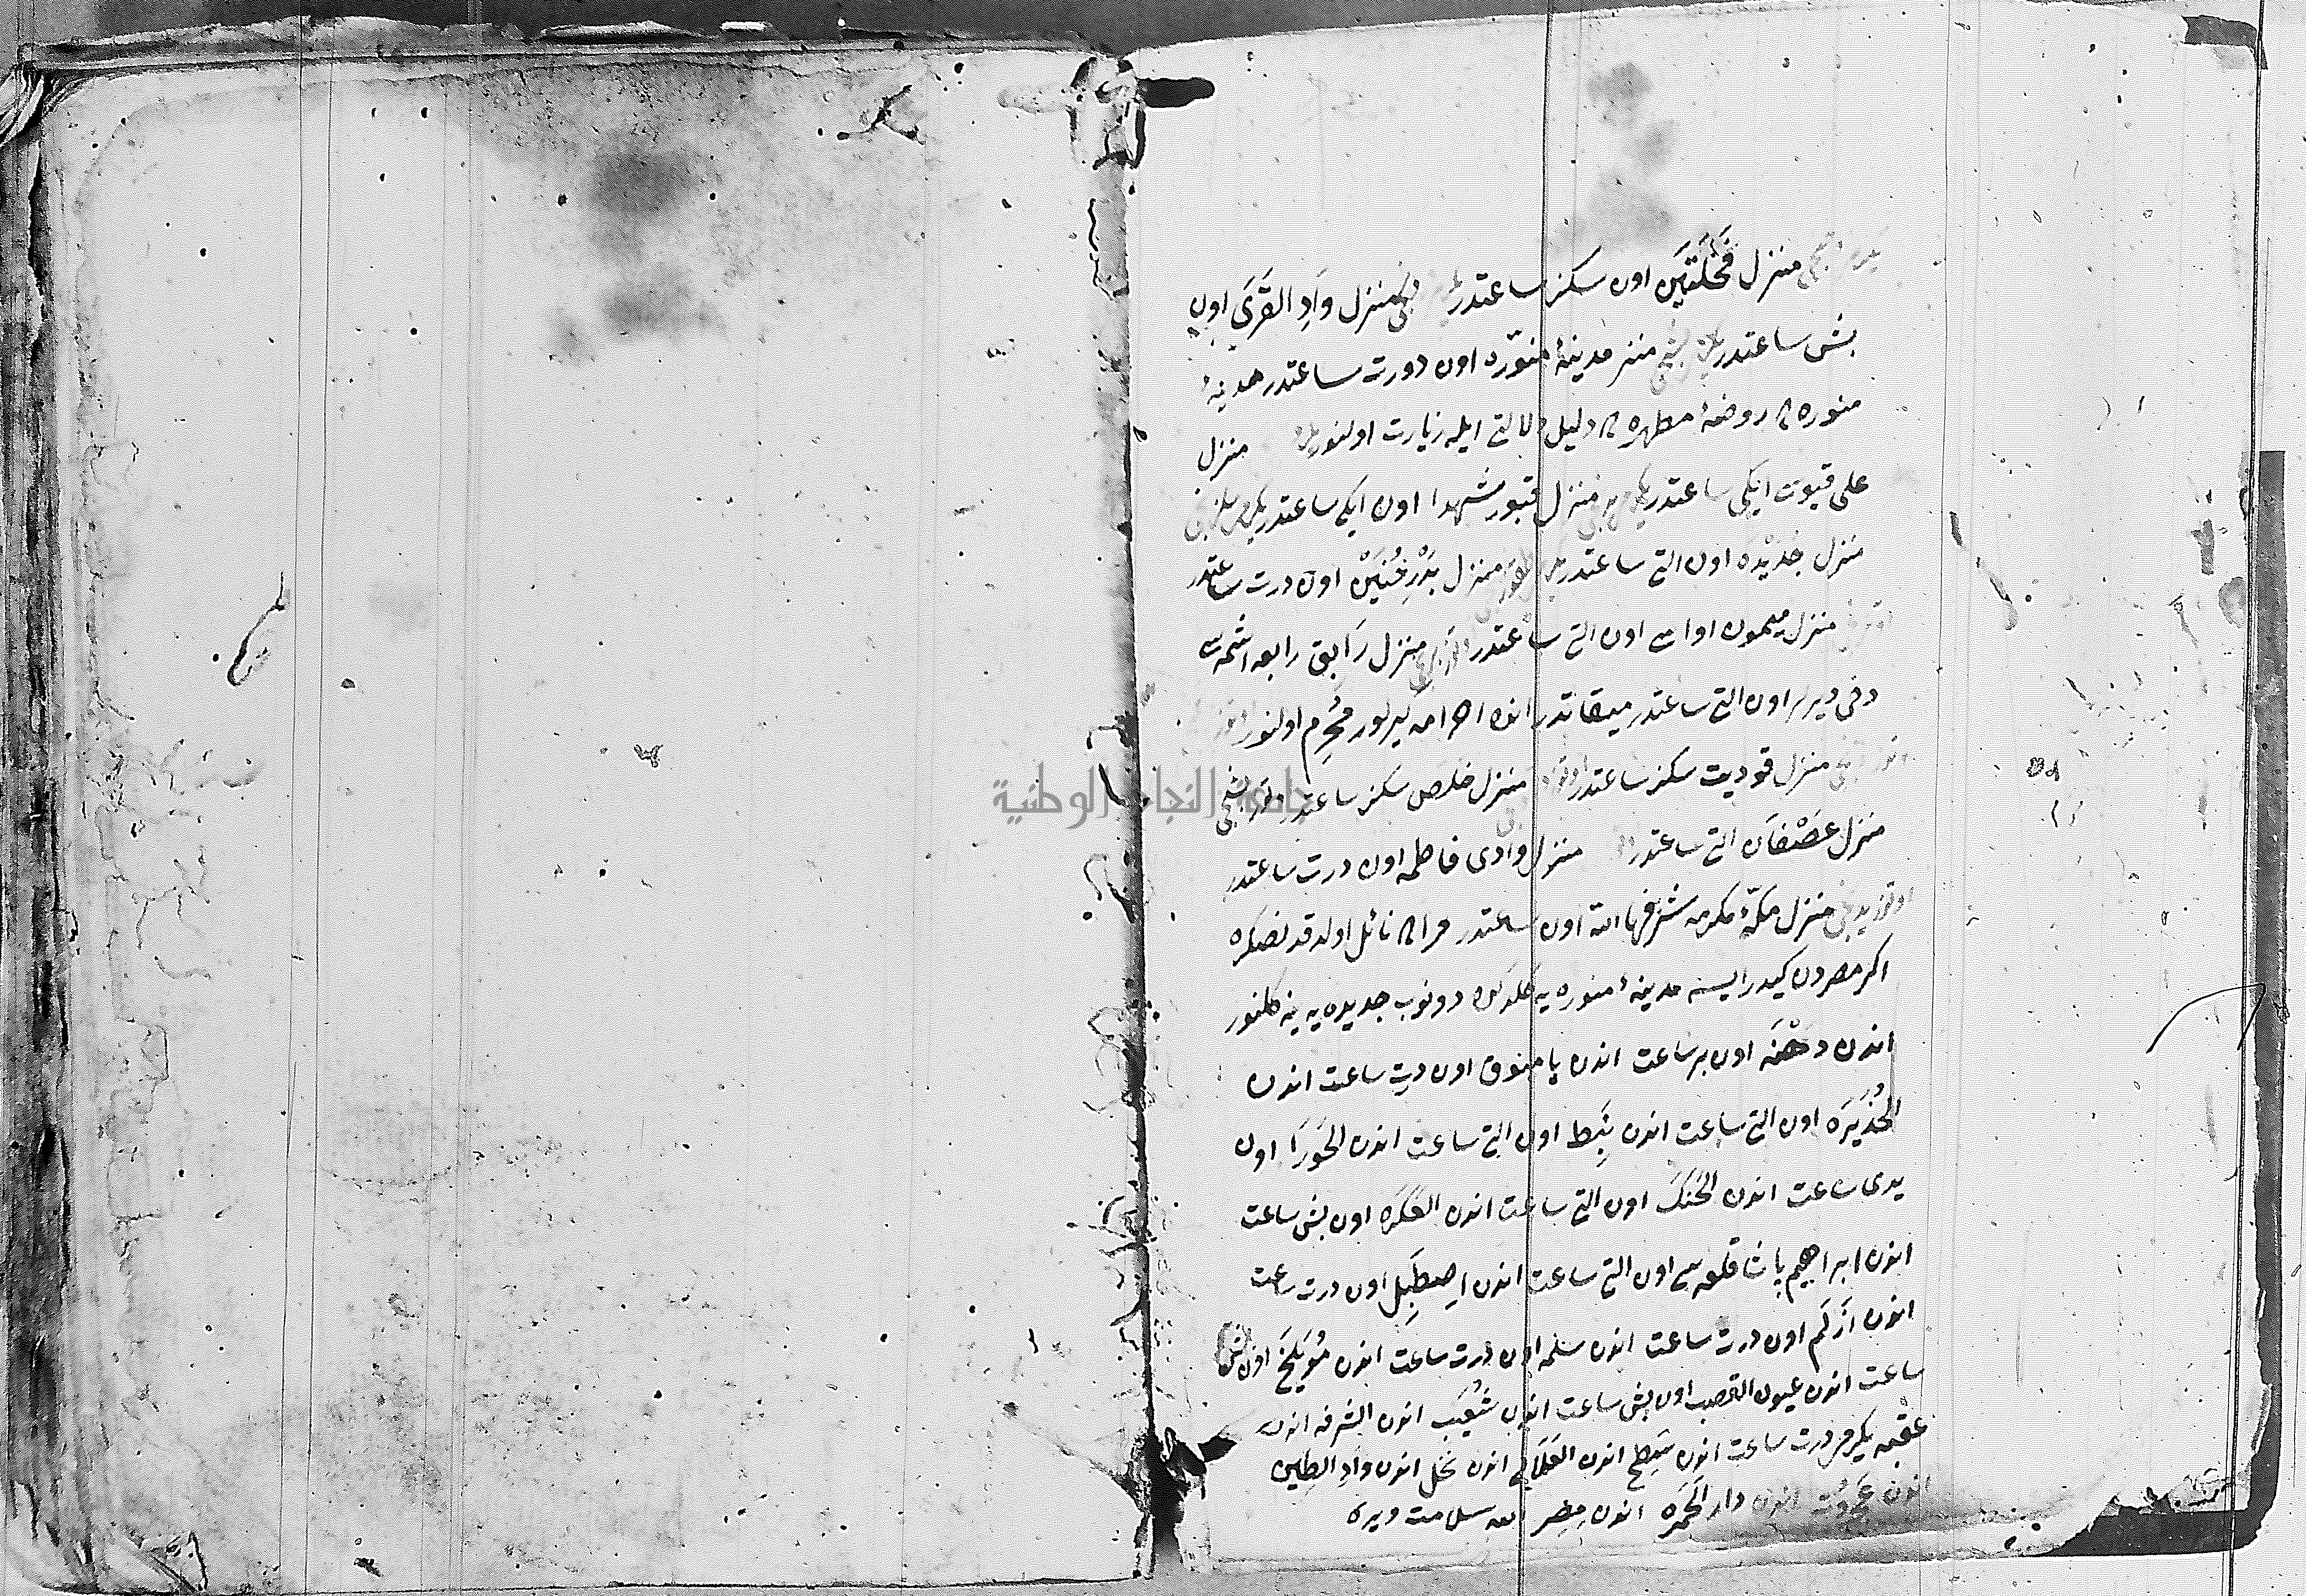 منزل فَحْلَتَيْن اون سكز ساعتدر منزل وَادِ القرَى اون
بش ساعتدر منزل مدينۀ منوّره اون دورت ساعتدر مدينۀ
منوره ده روضۀ مطهره ده دليل دلالتى ايله زيارت اولنور منزل
على قيوت ايكى ساعتدر منزل قبور شهدا اون ايكى ساعتدر
منزل جُدَيْدَه اون التى ساعتدر منزل بَدْرِ حُنَيْن اون درت ساعتدر
منزل ميمون اواسى اون التى ساعتدر منزل رَابِق رابعه اشمه سى
دخى ديرلر اون التى ساعتدر ميقاتدر انده احرامه كيريلور مُحْرِم اولنور
منزل قوديت سكز ساعتدر منزل خلص سكز ساعتدر
منزل عَصْفَان التى ساعتدر منزل وادى فاطمه اون درت ساعتدر
منزل مكّۀ مكرمه شرفها الله اون ساعتدر مرامه نائل اولدقدنصكره
اكر مصردن كيدر ايسه مدينۀ منوره يه كلدكده دونوب جديده يه ينه كلنور
اندن دهْنَه اون بر ساعت اندن يا منبوق اون درت ساعت اندن
الحُدَيْرَه اون التى ساعت اندن نَبَط اون التى ساعت اندن الحَوْرَا اون
يدى ساعت اندن الحَنَك اون التى ساعت اندن العَكَرَه اون بش ساعت
اندن ابراهيم پاشا قلعه سى اون التى ساعت اندن اصطبل اون درت ساعت
اندن اَزْلَم اون درت ساعت اندن سلمه اون درت ساعت اندن مُوَيْلَح اون بش
ساعت اندن عيون القصب اون بش ساعت اندن شُعَيْب اندن الشرفه اندن
عقبه يكرمى درت ساعت اندن سَطح اندن العَلَالى اندن نخل اندن وَادِ الطين
اندن عَجْرُوت اندن دار الحَمْرَه اندن مِصر الله سلامت ويره